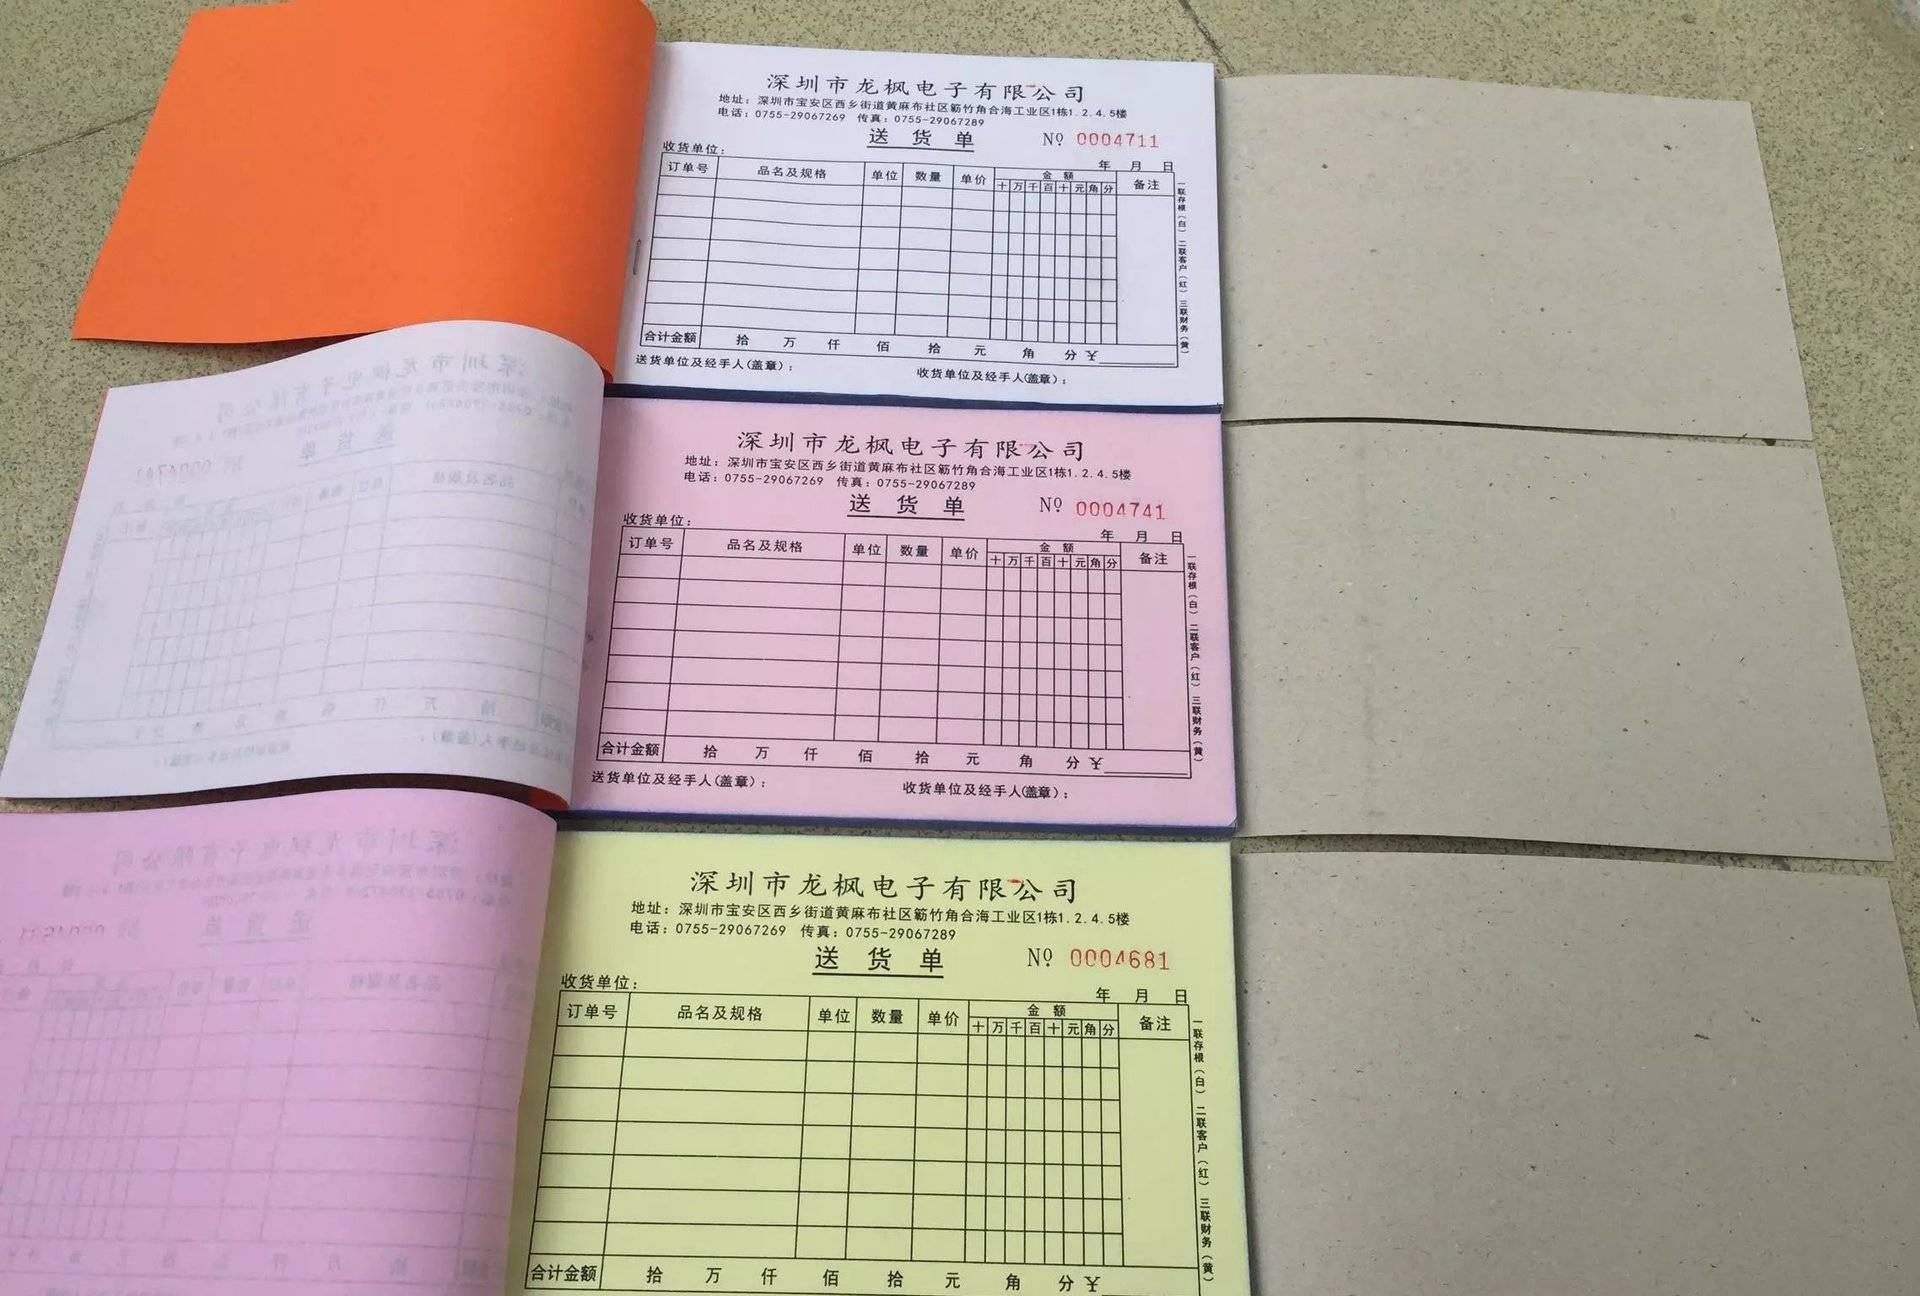 深圳市龙枫电子有限公司
地址：深圳市宝安区西乡街道黄麻布社区簕竹角合海工业区1栋1.2.4.5楼
电话：0755-29067269 传真：0755-29067289
送货单 Nº 0004711
收货单位： 年 月 日
订单号 品名及规格 单位 数量 单价 金额 备注
十 万 千 百 十 元 角 分
合计金额 拾 万 仟 佰 拾 元 角 分 ¥
送货单位及经手人(盖章)： 收货单位及经手人(盖章)：
一联存根(白) 二联客户(红) 三联财务(黄)
深圳市龙枫电子有限公司
地址：深圳市宝安区西乡街道黄麻布社区簕竹角合海工业区1栋1.2.4.5楼
电话：0755-29067269 传真：0755-29067289
送货单 Nº 0004741
收货单位： 年 月 日
订单号 品名及规格 单位 数量 单价 金额 备注
十 万 千 百 十 元 角 分
合计金额 拾 万 仟 佰 拾 元 角 分 ¥
送货单位及经手人(盖章)： 收货单位及经手人(盖章)：
一联存根(白) 二联客户(红) 三联财务(黄)
深圳市龙枫电子有限公司
地址：深圳市宝安区西乡街道黄麻布社区簕竹角合海工业区1栋1.2.4.5楼
电话：0755-29067269 传真：0755-29067289
送货单 Nº 0004681
收货单位： 年 月 日
订单号 品名及规格 单位 数量 单价 金额 备注
十 万 千 百 十 元 角 分
合计金额 拾 万 仟 佰 拾 元 角 分 ¥
一联存根(白) 二联客户(红) 三联财务(黄)